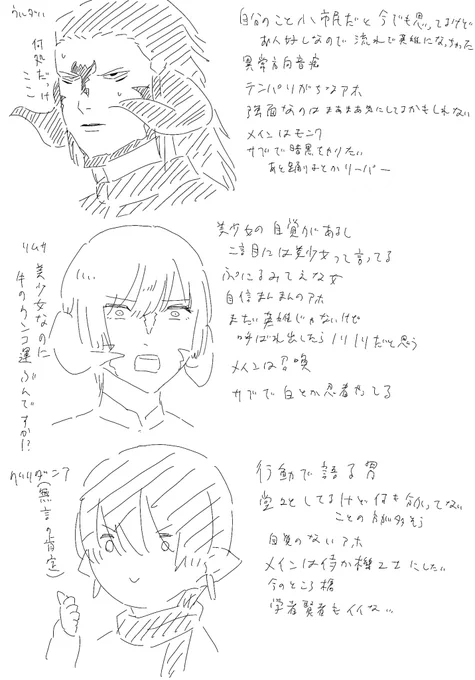 ウルダハ
何処だっけ
ここ
自分のこと小市民だと今でも思ってるけど
お人好しなので流れで英雄になっちゃった
異常方向音痴
テンパりがちなアホ
強面なのはまあまあ気にしてるかもしれない
メインはモンク
サブで暗黒をやりたい
あと踊り子とかリーパー
リムサ
美少女なのに
牛のウンコ運ぶんですか!?
美少女の自覚がある
二言目には美少女って言ってる
ぷにるみてえな女
自信まんまんのアホ
まだ英雄じゃないけど
呼ばれ出したらノリノリだと思う
メインは召喚
サブで白とか忍者やってる
グリダニア
(無言の肯定)
行動で語る男
堂々としてるけど何も分かってない
ことの方が多そう
自覚のないアホ
メインは侍か機工士にしたい
今のところ槍
学者賢者もイイな…